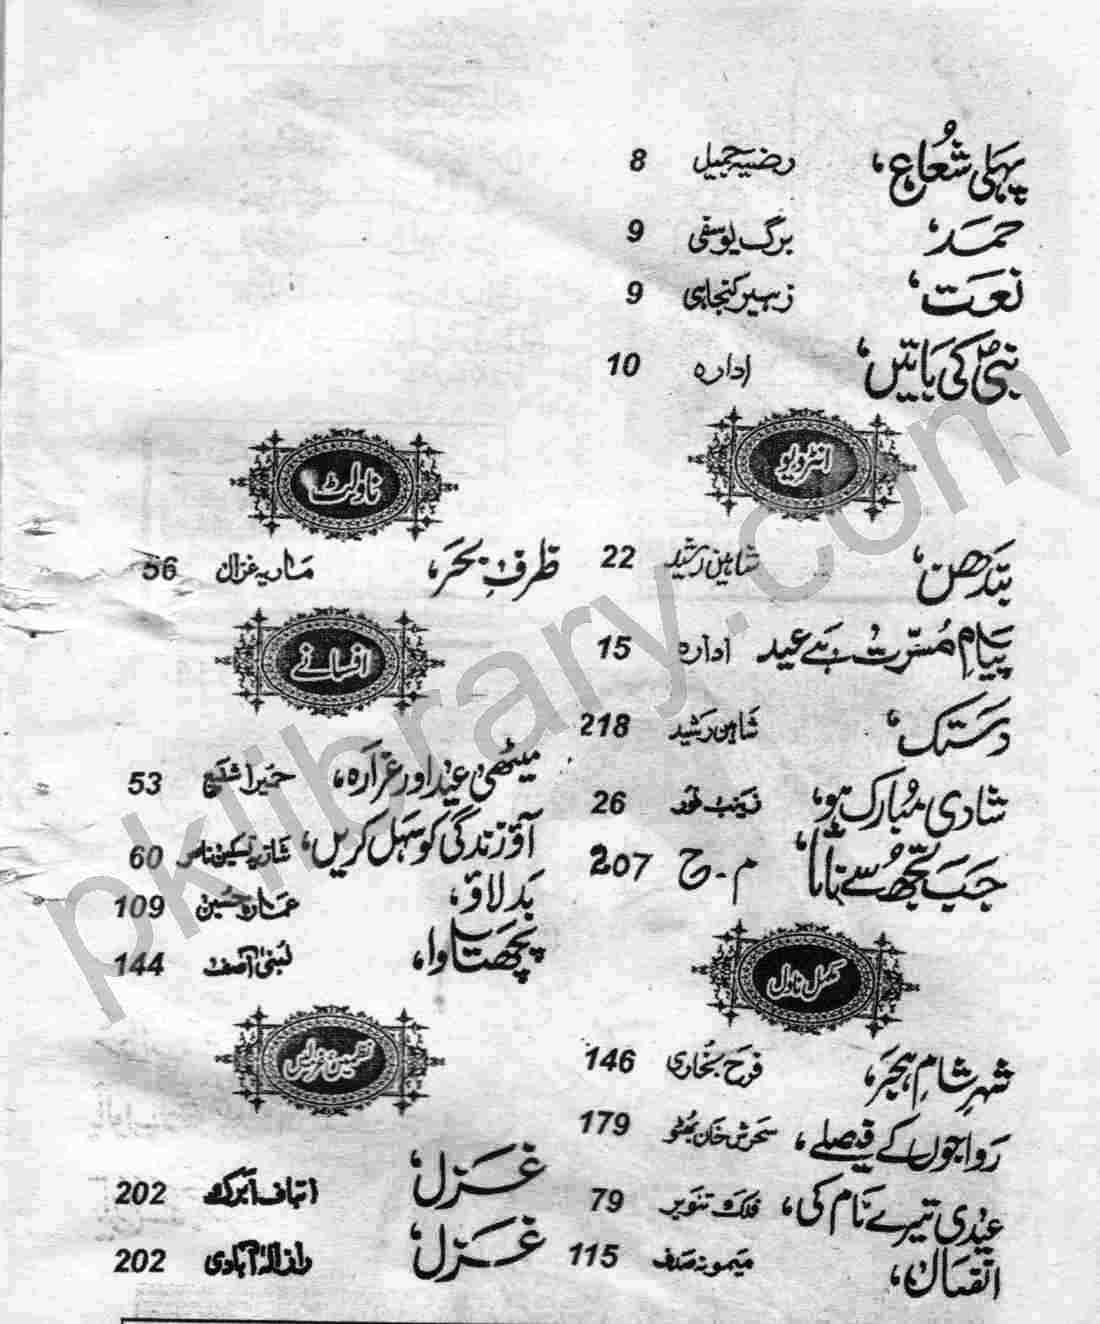 پہلی شعاع، رضیہ جمیل 8
حمد، برگ یوسفی 9
نعت، زہیر کنجاہی 9
نبیؐ کی باتیں، ادارہ 10
انٹرویو
بندھن، شاہین رشید 22
پیامِ مسرّت ہے عید ادارہ 15
دستک، شاہین رشید 218
شادی مبارک ہو، زینب نور 26
جب تجھ سے ناتا، م۔ح 207
مکمل ناول
شہرِ شامِ ہجر، فرح بخاری 146
رواجوں کے فیصلے، سحرش خان بھٹو 179
عیدی تیرے نام کی، فلک تنویر 79
اتصال، میمونہ صدف 115
ناولٹ
ظرفِ بحر، ماریہ غزال 56
افسانے
میٹھی عید اور غرارہ، حمیرا شفیع 53
آؤ زندگی کو سہل کریں، شازیہ تسکین ناصر 60
بدلاؤ، عمارہ حسین 109
پچھتاوا، لبنیٰ آصف 144
نظمیں غزلیں
غزل، اتباف ابرک 202
غزل، راز الٰہ آبادی 202
pklibrary.com